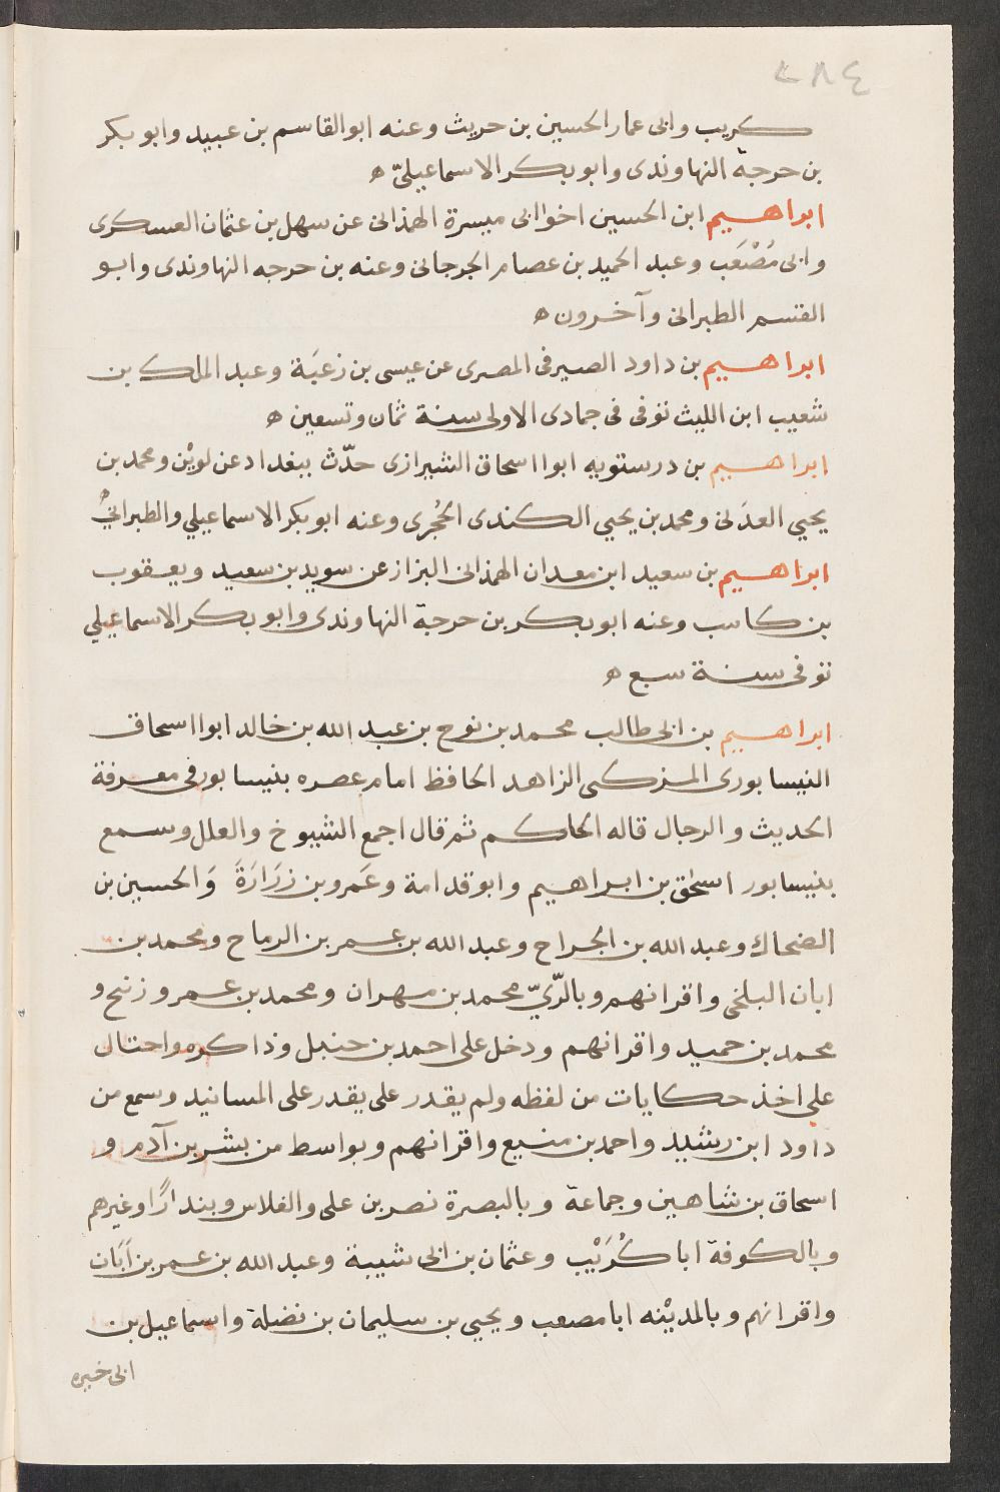 ٢٨٤
كريب وابى عمار الحسين بن حريث وعنه ابو القاسم بن عبيد وابو بكر
بن حرجة النهاوندى وابو بكر الاسماعيلىّ ه
ابراهيم ابن الحسين اخو ابى ميسرة الهمذانى عن سهل بن عثمان العسكرى
وابى مُصْعَب وعبد الحميد بن عصام الجرجانى وعنه بن حرجه النهاوندى وابو
القسم الطبرانى وآخرون ه
ابراهيم بن داود الصيرفى المصرى عن عيسى بن زغبَة وعبد الملك بن
شعيب ابن الليث توفى فى جمادى الاولى سنة ثمان وتسعين ه
ابراهيم بن درستويه ابوا اسحاق الشيرازى حدّث ببغداد عن لويْن ومحمد بن
يحيى العدَنى ومحمد بن يحيى الكندى الحُجرى وعنه ابو بكر الاسماعيلي والطبرانيُّ ه
ابراهيم بن سعيد ابن معدان الهمذانى البزاز عن سويد بن سعيد ويعقوب
بن كاسب وعنه ابو بكر بن حرجة النهاوندى وابو بكر الاسماعيلي
توفى سنة سبع ه
ابراهيم بن ابى طالب محمد بن نوح بن عبد الله بن خالد ابوا اسحاق
النيسابورى المزكى الزاهد الحافظ امام عصره بنيسابور فى معرفة
الحديث والرجال قاله الحاكم ثم قال اجمع الشيوخ والعلل وسمع
بنيسابور اسحٰق بن ابراهيم وابو قدامة وعَمرو بن زرَارَةَ وَالحسين بن
الضحاك وعبد الله بن الجراح وعبد الله بن عمر بن الرماح ومحمد بن
ابان البلخى واقرانهم وبالرّىّ محمد بن مهران ومحمد بن عمرو زنيج و
محمد بن حميد واقرانهم ودخل على احمد بن حنبل وذاكره واحتال
على اخذ حكايات من لفظه ولم يقدر على يقدر على المسانيد وسمع من
داود ابن رشيد واحمد بن منيع واقرانهم وبواسط من بشر بن آدم و
اسحاق بن شاهين وجماعة وبالبصرة نصر بن على والفلاس وبندارًا وغيرهم
وبالكوفة ابا كُرَيْب وعثمان بن ابى شيبة وعبد الله بن عمر بن اَبَان
واقرانهم وبالمديْنه ابا مصعب ويحيى بن سليمان بن نضلة واسماعيل بن
ابى خبره